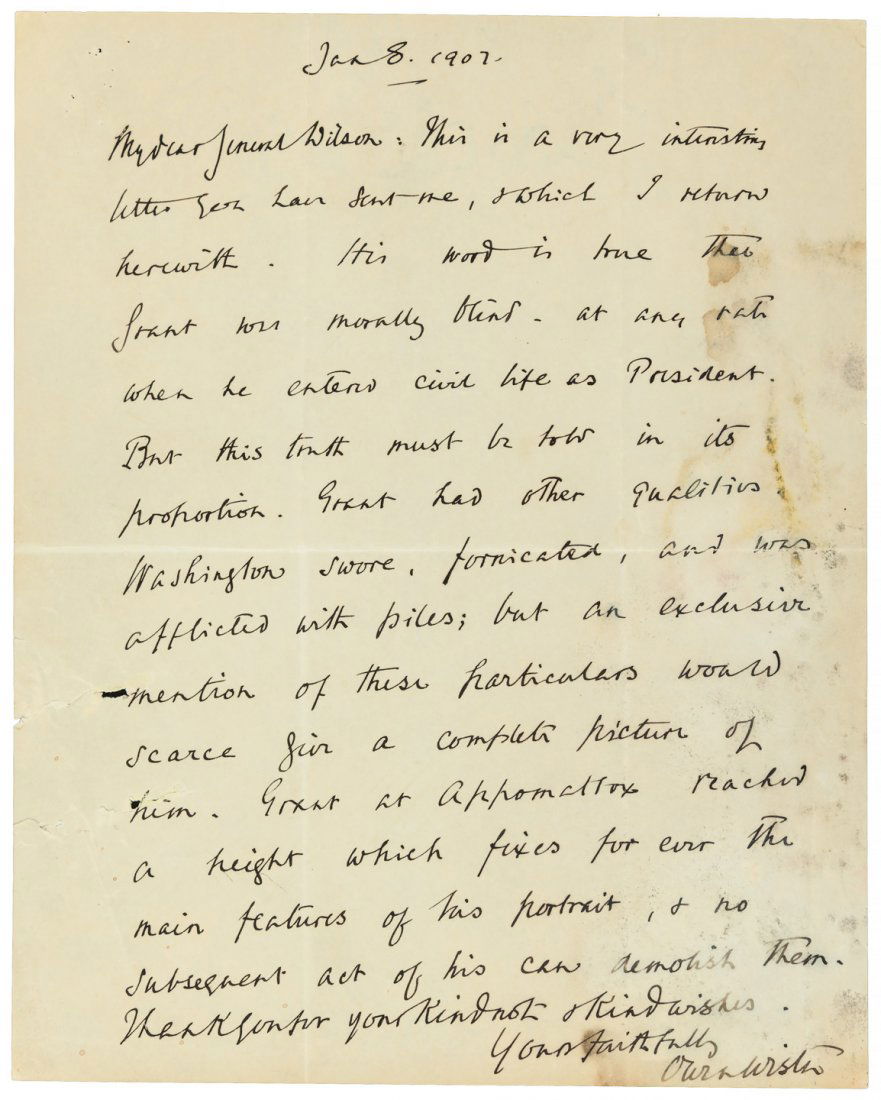 Jan 8. 1902.
My dear General Wilson: This is a very interesting
letter you have sent me, & which I return
herewith. His word is true that
Grant was morally blind - at any rate
when he entered civil life as President.
But this truth must be told in its
proportion. Grant had other qualities.
Washington swore, fornicated, and was
afflicted with piles; but an exclusive
mention of these particulars would
scarce give a complete picture of
him. Grant at Appomattox reached
a height which fixes for ever the
main features of his portrait, & no
subsequent act of his can demolish them.
Thank you for your kind note & kind wishes.
Yours faithfully
Owen Wister